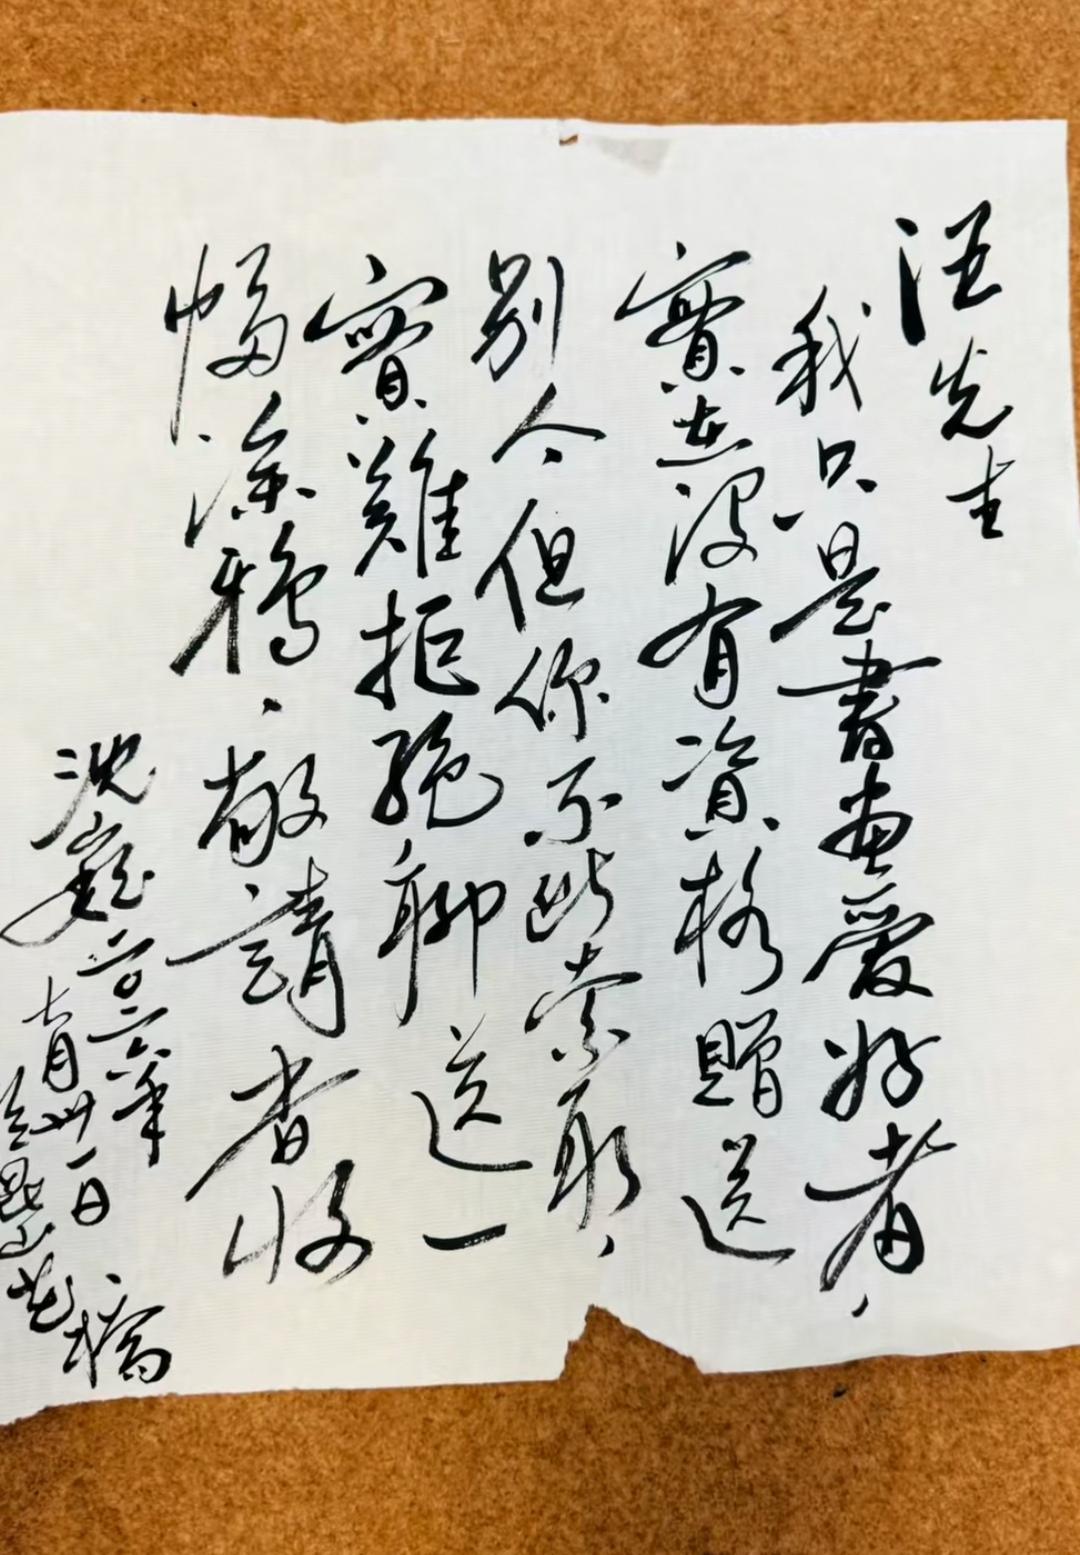 汪先生
我只是書畫愛好者，
實在沒有資格贈送
別人，但你不㫮索取，
實難拒絕，聊送一
幅塗鴉，敬請查收
沈巍二〇二六年
七月卅一日
於昆山花橋